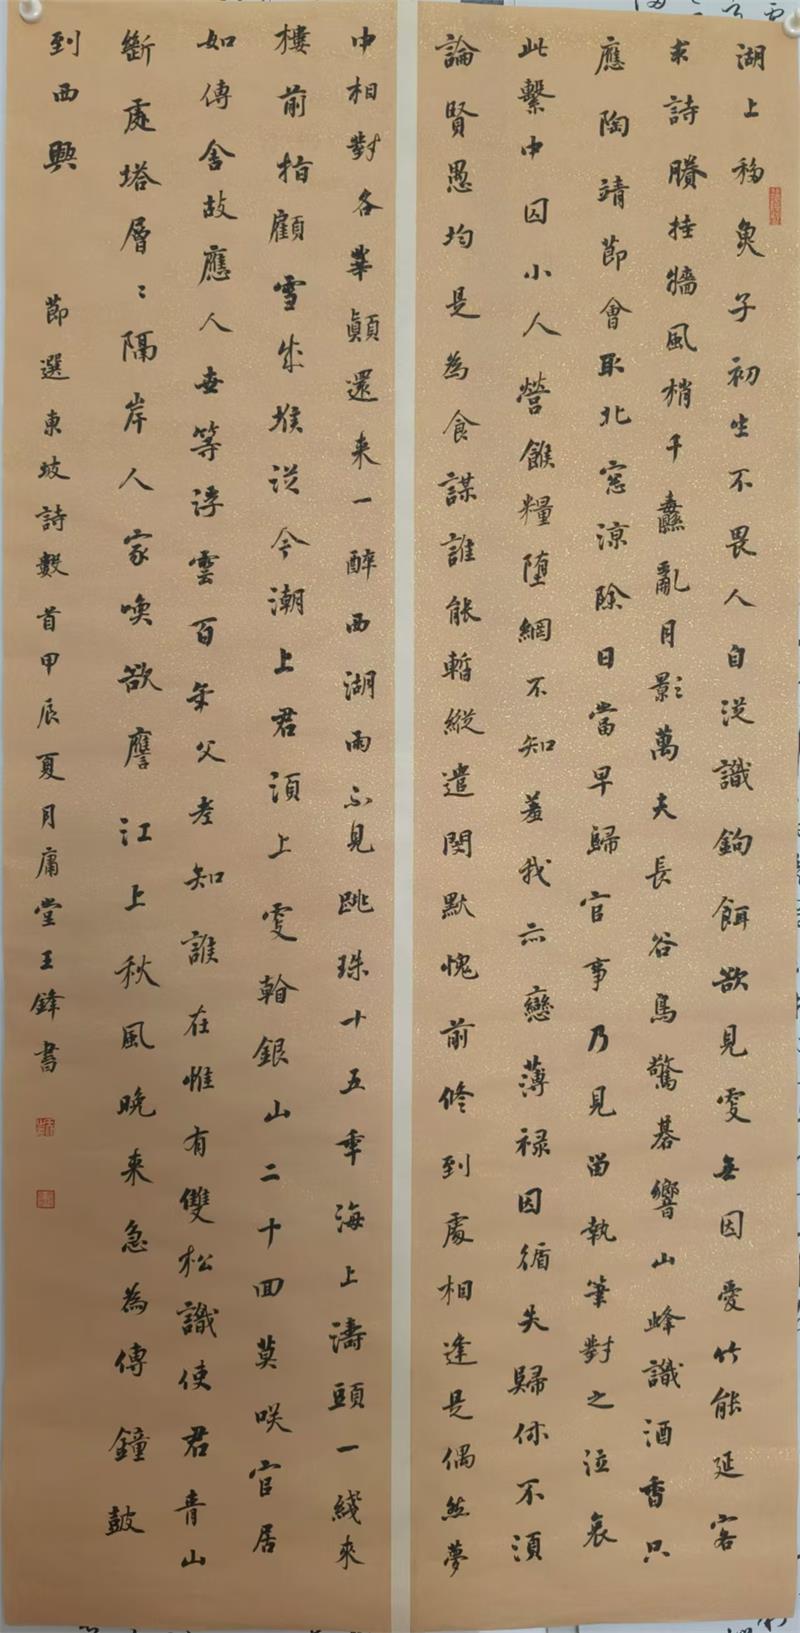 湖上移魚子初生不畏人自從識鉤餌欲見更無因愛竹能延客
求詩賸挂牆風梢千纛亂月影萬夫長谷鳥驚棊響山蜂識酒香只
應陶靖節會取北窓涼除日當早歸官事乃見留執筆對之泣哀
此繫中囚小人營餱糧墮網不知羞我亦戀薄禄因循失歸休不須
論賢愚均是為食謀誰能暫縱遣閔默愧前修到處相逢是偶然夢
中相對各華顛還来一醉西湖雨不見跳珠十五年海上濤頭一綫來
樓前指顧雪成堆從今潮上君須上更看銀山二十回莫咲官居
如傳舍故應人世等浮雲百年父老知誰在惟有雙松識使君青山
斷處塔層〻隔岸人家喚欲譍江上秋風晚来急為傳鐘鼓
到西興
節選東坡詩數首甲辰夏月庸堂王鋒書